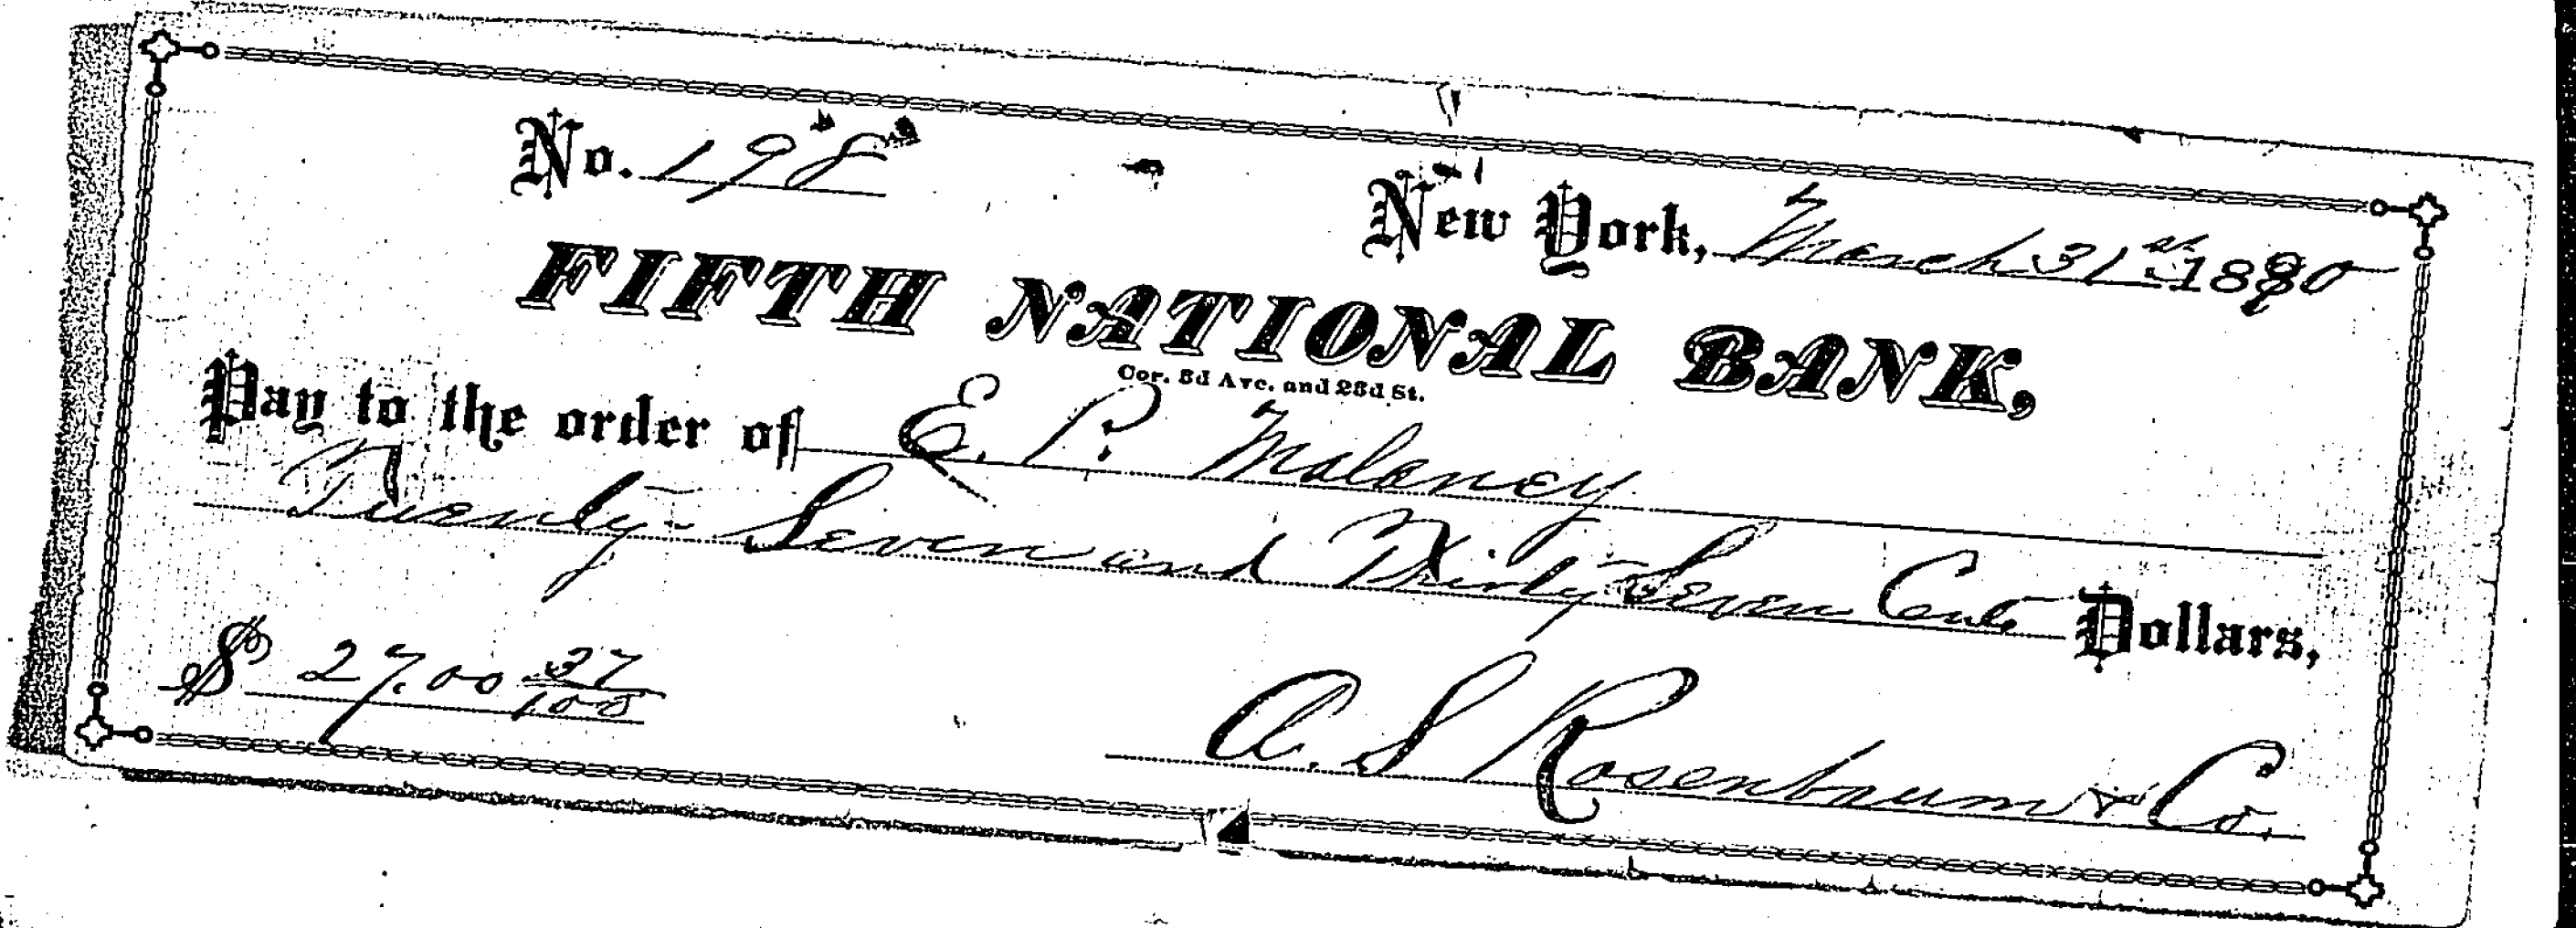 No. 198
New York, March 31st 1880
FIFTH NATIONAL BANK,
Cor. 3d Ave. and 23d St.
Pay to the order of E. P. Malaney
Twenty-Seven and Thirty Seven Cents Dollars,
$ 27.00 37/100
A. S Rosenbaum & Co.